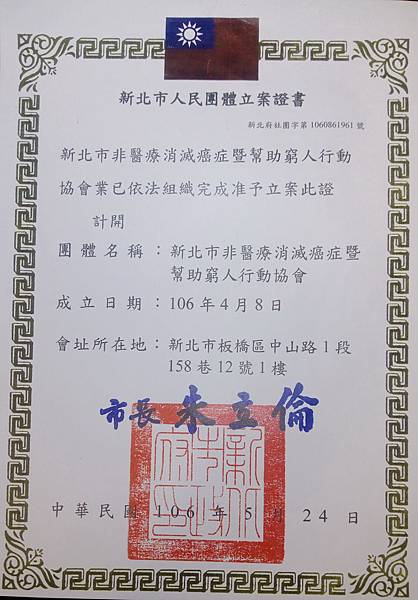 新北市人民團體立案證書
新北府社團字第1060861961號
新北市非醫療消滅癌症暨幫助窮人行動
協會業已依法組織完成准予立案此證
計開
團體名稱：新北市非醫療消滅癌症暨
幫助窮人行動協會
成立日期：106年4月8日
會址所在地：新北市板橋區中山路1段
158巷12號1樓
市長 朱立倫
新北市政府印
中華民國106年5月24日